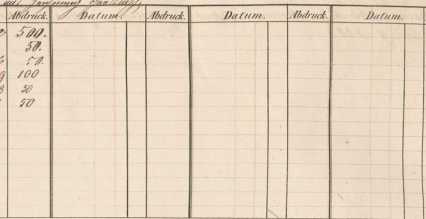 Abdruck. Datum. Abdruck. Datum. Abdruck. Datum.
500.
50.
50.
100
50
50